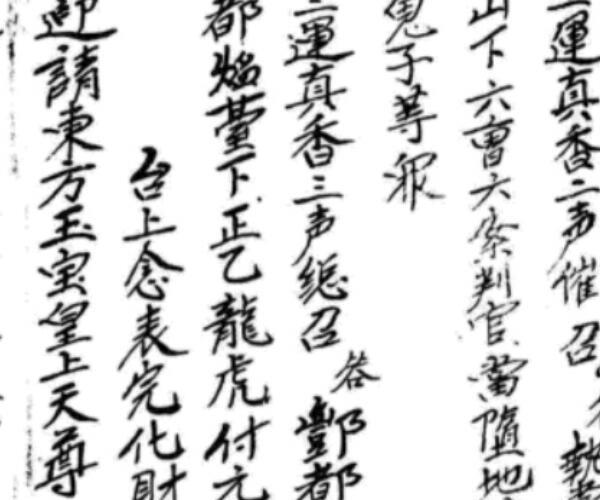 二運真香二声催召
山下六曹大案判官當墮地
鬼子等眾
三運真香三声總召 答 酆都
都焰臺下正乙龍虎付元
台上念表完化財
迎請東方玉宝皇上天尊